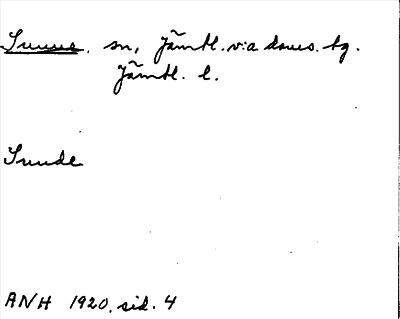 Sunne. sn, Jämtl. v:a doms. tg.
Jämtl. l.
Sunde
ANH 1920, sid. 4